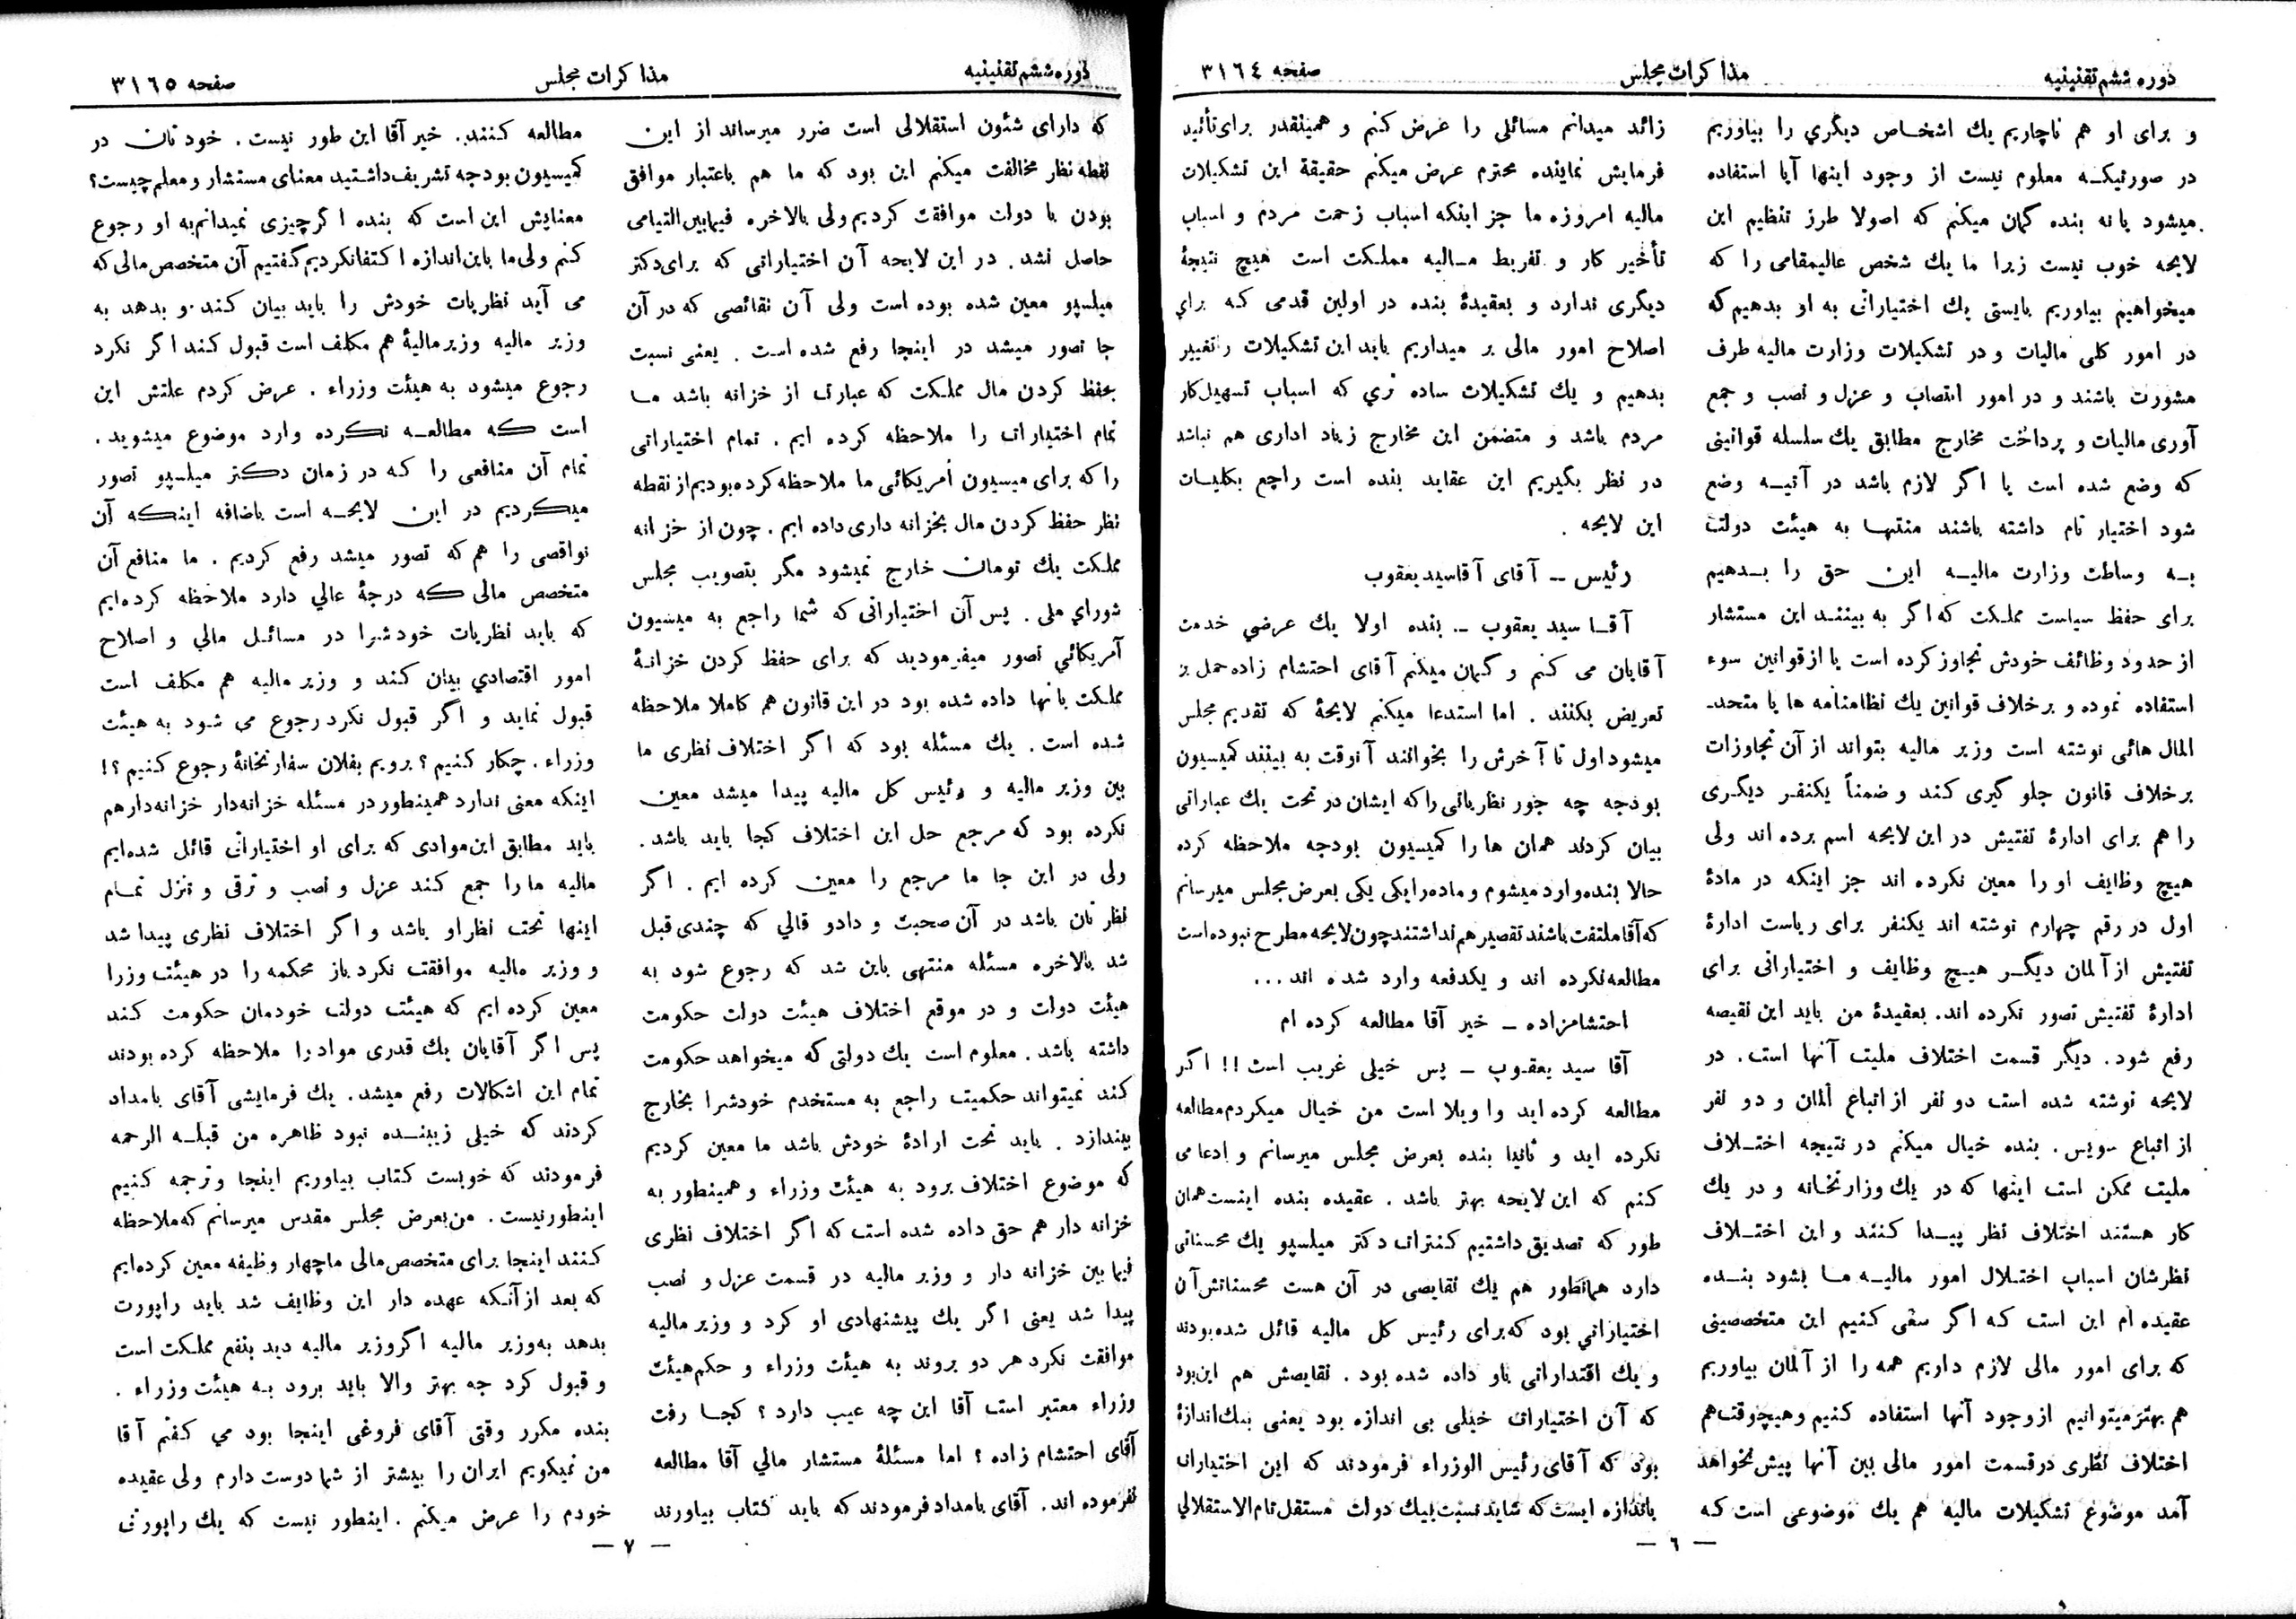 دوره ششم تقنینیه
مذاکرات مجلس
صفحه ٣١٦٤
و برای او هم ناچاریم یك اشخاص دیگري را بیاوریم
در صورتیکه معلوم نیست از وجود اینها آیا استفاده
میشود یا نه بنده گمان میکنم که اصولا طرز تنظیم این
لایحه خوب نیست زیرا ما یك شخص عالیمقامی را که
میخواهیم بیاوریم بایستی یك اختیاراتی به او بدهیم که
در امور کلی مالیات و در تشکیلات وزارت مالیه طرف
مشورت باشند و در امور انتصاب و عزل و نصب و جمع
آوری مالیات و پرداخت مخارج مطابق یك سلسله قوانینی
که وضع شده است یا اگر لازم باشد در آتیه وضع
شود اختیار تام داشته باشند منتها به هیئت دولت
به وساطت وزارت مالیه این حق را بدهیم
برای حفظ سیاست مملکت که اگر به بینند این مستشار
از حدود وظائف خودش تجاوز کرده است یا از قوانین سوء
استفاده نموده و برخلاف قوانین یك نظامنامه ها یا متحد-
المال هائی نوشته است وزیر مالیه بتواند از آن تجاوزات
برخلاف قانون جلو گیری کند و ضمناً یکنفر دیگری
را هم برای ادارهٔ تفتیش در این لایحه اسم برده اند ولی
هیچ وظایف او را معین نکرده اند جز اینکه در مادهٔ
اول در رقم چهارم نوشته اند یکنفر برای ریاست ادارهٔ
تفتیش از آلمان دیگر هیچ وظایف و اختیاراتی برای
ادارهٔ تفتیش تصور نکرده اند. بعقیدهٔ من باید این نقیصه
رفع شود. دیگر قسمت اختلاف ملیت آنها است. در
لایحه نوشته شده است دو نفر از اتباع آلمان و دو نفر
از اتباع سویس. بنده خیال میکنم در نتیجه اختلاف
ملیت ممکن است اینها که در یك وزارتخانه و در یك
کار هستند اختلاف نظر پیدا کنند و این اختلاف
نظرشان اسباب اختلال امور مالیه ما بشود بنده
عقیده ام این است که اگر سعی کنیم این متخصصینی
که برای امور مالی لازم داریم همه را از آلمان بیاوریم
هم بهتر میتوانیم از وجود آنها استفاده کنیم و هیچوقت هم
اختلاف نظری در قسمت امور مالی بین آنها پیش نخواهد
آمد موضوع تشکیلات مالیه هم یك موضوعی است که
زائد میدانم مسائلی را عرض کنم و همینقدر برای تأئید
فرمایش نماینده محترم عرض میکنم حقیقة این تشکیلات
مالیه امروزه ما جز اینکه اسباب زحمت مردم و اسباب
تأخیر کار و تفریط مالیه مملکت است هیچ نتیجهٔ
دیگری ندارد و بعقیدهٔ بنده در اولین قدمی که براي
اصلاح امور مالی بر میداریم باید این تشکیلات را تغییر
بدهیم و یك تشکیلات ساده تري که اسباب تسهیل کار
مردم باشد و متضمن این مخارج زیاد اداری هم نباشد
در نظر بگیریم این عقاید بنده است راجع بکلیات
این لایحه .
رئیس — آقای آقاسید یعقوب
آقا سید یعقوب — بنده اولا یك عرضي خدمت
آقایان می کنم و گمان میکنم آقای احتشام زاده حمل بر
تعریض بکنند . اما استدعا میکنم لایحهٔ که تقدیم مجلس
میشود اول تا آخرش را بخوانند آنوقت به بینند کمیسیون
بودجه چه جور نظریاتی را که ایشان در تحت یك عباراتی
بیان کردند همان ها را کمیسیون بودجه ملاحظه کرده
حالا بنده وارد میشوم و ماده را یکی یکی بعرض مجلس میرسانم
که آقا ملتفت باشند تقصیر هم نداشتند چون لایحه مطرح نبوده است
مطالعه نکرده اند و یکدفعه وارد شده اند...
احتشامزاده — خیر آقا مطالعه کرده ام
آقا سید یعقوب — پس خیلی غریب است !! اگر
مطالعه کرده اید واویلا است من خیال میکردم مطالعه
نکرده اید و ثانیا بنده بعرض مجلس میرسانم و ادعا می
کنم که این لایحه بهتر باشد . عقیده بنده اینست همان
طور که تصدیق داشتیم کنترات دکتر میلسپو یك محسناتی
دارد همانطور هم یك نقایصی در آن هست محسناتش آن
اختیاراتي بود که برای رئیس کل مالیه قائل شده بودند
و یك اقتداراتی باو داده شده بود . نقایصش هم این بود
که آن اختیارات خیلی بی اندازه بود یعنی بیك اندازهٔ
بود که آقای رئیس الوزراء فرمودند که این اختیارات
باندازه ایست که شاید نسبت بیك دولت مستقل تام الاستقلالي
— ٦ —
دوره ششم تقنینیه
مذاکرات مجلس
صفحه ٣١٦٥
که دارای شئون استقلالی است ضرر میرساند از این
نقطه نظر مخالفت میکنم این بود که ما هم باعتبار موافق
بودن با دولت موافقت کردیم ولی بالاخره فیمابین التیامی
حاصل نشد. در این لایحه آن اختیاراتی که برای دکتر
میلسپو معین شده بوده است ولی آن نقائصی که در آن
جا تصور میشد در اینجا رفع شده است . یعنی نسبت
بحفظ کردن مال مملکت که عبارت از خزانه باشد ما
تمام اختیارات را ملاحظه کرده ایم . تمام اختیاراتی
را که برای میسیون آمریکائی ما ملاحظه کرده بودیم از نقطه
نظر حفظ کردن مال بخزانه داری داده ایم . چون از خزانه
مملکت یك تومان خارج نمیشود مگر بتصویب مجلس
شورای ملی . پس آن اختیاراتی که شما راجع به میسیون
آمریکائي تصور میفرمودید که برای حفظ کردن خزانهٔ
مملکت بآنها داده شده بود در این قانون هم کاملا ملاحظه
شده است . یك مسئله بود که اگر اختلاف نظری ما
بین وزیر مالیه و رئیس کل مالیه پیدا میشد معین
نکرده بود که مرجع حل این اختلاف کجا باید باشد .
ولی در این جا ما مرجع را معین کرده ایم . اگر
نظر تان باشد در آن صحبت و دادو قالی که چندی قبل
شد بالاخره مسئله منتهی باین شد که رجوع شود به
هیئت دولت و در موقع اختلاف هیئت دولت حکومت
داشته باشد . معلوم است یك دولتی که میخواهد حکومت
کند نمیتواند حکمیت راجع به مستخدم خودشرا بخارج
بیندازد . باید تحت ارادهٔ خودش باشد ما معین کردیم
که موضوع اختلاف برود به هیئت وزراء و همینطور به
خزانه دار هم حق داده شده است که اگر اختلاف نظری
فیما بین خزانه دار و وزیر مالیه در قسمت عزل و نصب
پیدا شد یعنی اگر یك پیشنهادی او کرد و وزیر مالیه
موافقت نکرد هر دو بروند به هیئت وزراء و حکم هیئت
وزراء معتبر است آقا این چه عیب دارد ؟ کجا رفت
آقای احتشام زاده ؟ اما مسئلهٔ مستشار مالي آقا مطالعه
نفرموده اند. آقای بامداد فرمودند که باید کتاب بیاورند
مطالعه کنند. خیر آقا این طور نیست . خودتان در
کمیسیون بودجه تشریف داشتید معنای مستشار و معلم چیست؟
معنایش این است که بنده اگر چیزی نمیدانم به او رجوع
کنم ولی ما باین اندازه اکتفا نکردیم گفتیم آن متخصص مالی که
می آید نظریات خودش را باید بیان کند و بدهد به
وزیر مالیه وزیر مالیهٔ هم مکلف است قبول کند اگر نکرد
رجوع میشود به هیئت وزراء . عرض کردم علتش این
است که مطالعه نکرده وارد موضوع میشوید .
تمام آن منافعی را که در زمان دکتر میلسپو تصور
میکردیم در این لایحه است باضافه اینکه آن
نواقصی را هم که تصور میشد رفع کردیم . ما منافع آن
متخصص مالی که درجهٔ عالي دارد ملاحظه کرده‌ایم
که باید نظریات خودشرا در مسائل مالي و اصلاح
امور اقتصادي بیان کند و وزیر مالیه هم مکلف است
قبول نماید و اگر قبول نکرد رجوع می شود به هیئت
وزراء . چکار کنیم ؟ برویم بفلان سفارتخانهٔ رجوع کنیم ؟!
اینکه معنی ندارد همینطور در مسئله خزانه‌دار خزانه‌دار هم
باید مطابق این موادی که برای او اختیاراتی قائل شده‌ایم
مالیه ما را جمع کند عزل و نصب و ترقی و تنزل تمام
اینها تحت نظر او باشد و اگر اختلاف نظری پیدا شد
و وزیر مالیه موافقت نکرد باز محکمه را در هیئت وزرا
معین کرده ایم که هیئت دولت خودمان حکومت کند
پس اگر آقایان یك قدری مواد را ملاحظه کرده بودند
تمام این اشکالات رفع میشد. یك فرمایشی آقای بامداد
کردند که خیلی زیبنده نبود ظاهره من قبله الرحمه
فرمودند که خوبست کتاب بیاوریم اینجا و ترجمه کنیم
اینطور نیست . من بعرض مجلس مقدس میرسانم که ملاحظه
کنند اینجا برای متخصص مالی ما چهار وظیفه معین کرده‌ایم
که بعد از آنکه عهده دار این وظایف شد باید راپورت
بدهد به وزیر مالیه اگر وزیر مالیه دید بنفع مملکت است
و قبول کرد چه بهتر والا باید برود به هیئت وزراء .
بنده مکرر وقتی آقای فروغی اینجا بود می گفتم آقا
من نمیگویم ایران را بیشتر از شما دوست دارم ولی عقیده
خودم را عرض میکنم . اینطور نیست که یك راپورتی
— ٧ —